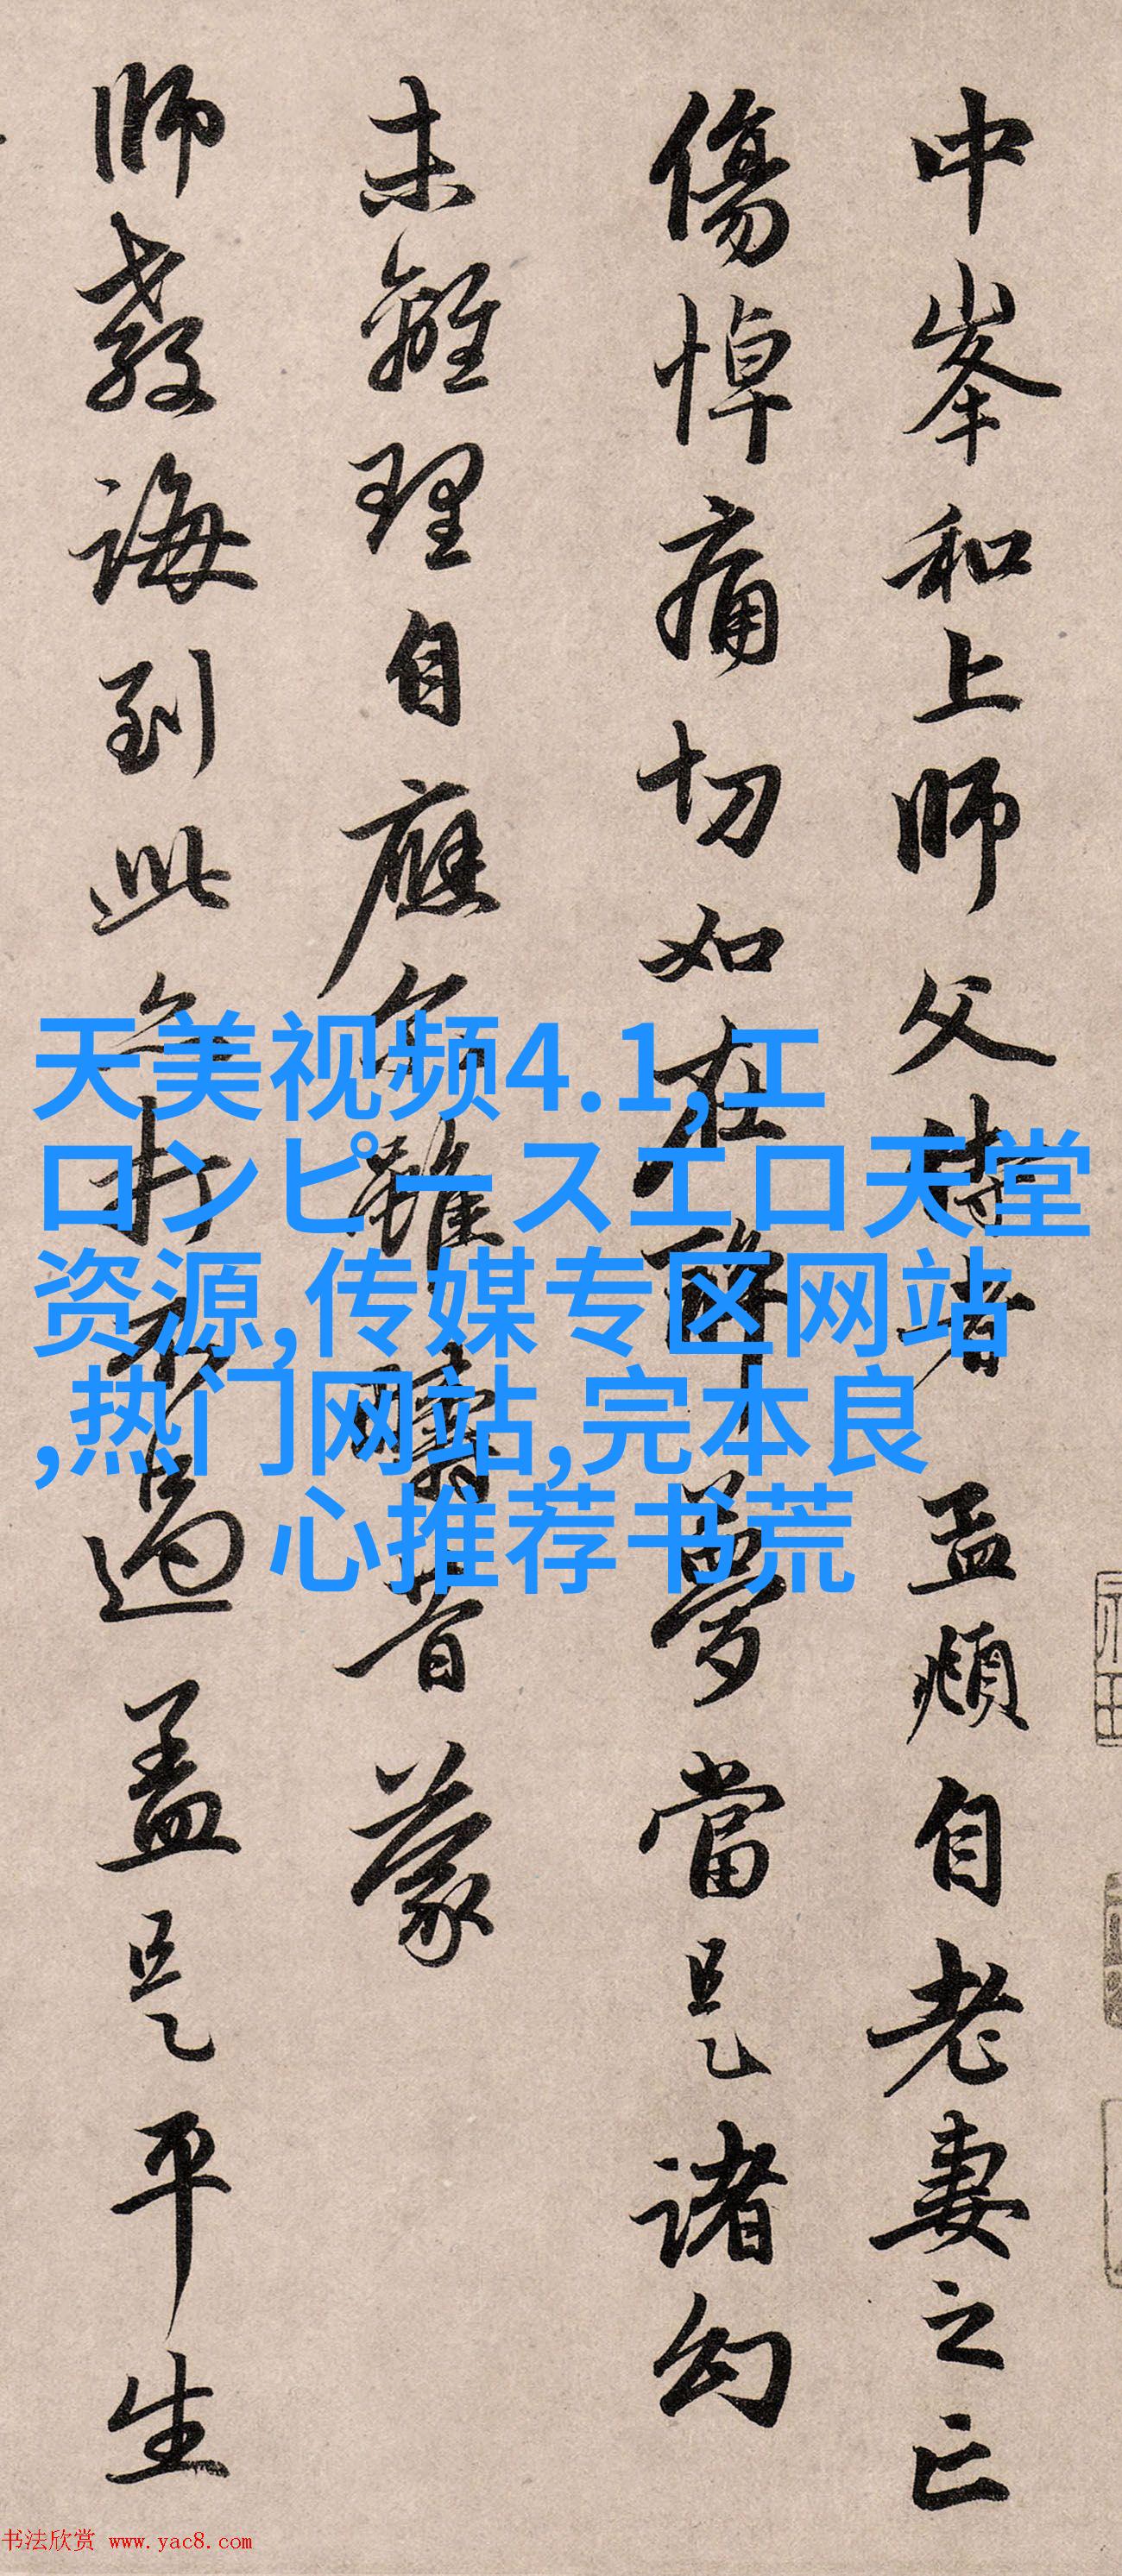 中峯和上師父侍者 孟頫自老妻之亡
傷悼痛切如在醉夢當是諸幻
未離理自應尔雖疇昔蒙
師教誨到此打不過盖是平生
天美视频4.1,エ
ロンピースエロ天堂
资源,传媒专区网站
,热门网站,完本良
心推荐书荒
书法欣赏 www.yac8.com